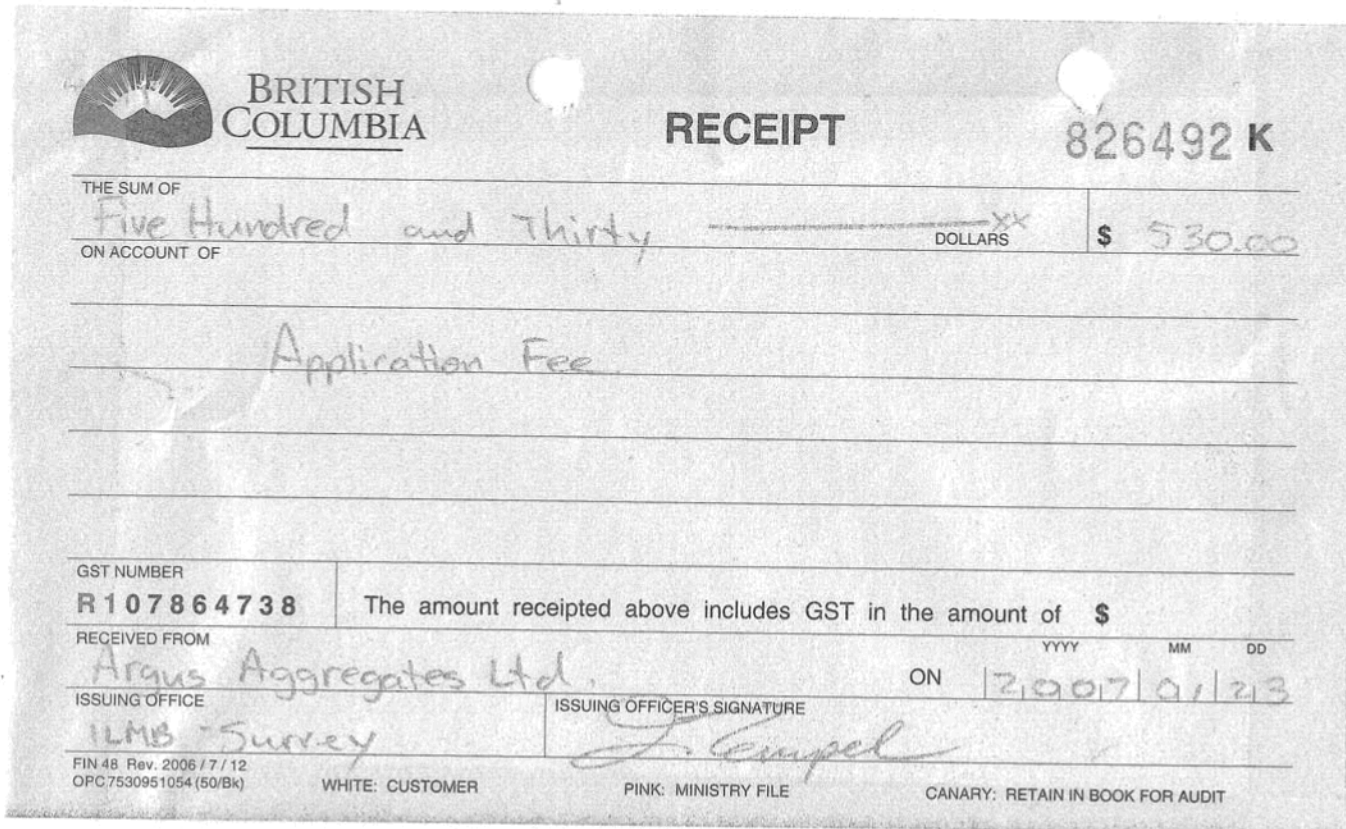 BRITISH
COLUMBIA
RECEIPT
826492 K
THE SUM OF
Five Hundred and Thirty ———— XX DOLLARS $ 530.00
ON ACCOUNT OF
Application Fee
GST NUMBER
R107864738 The amount receipted above includes GST in the amount of $
RECEIVED FROM YYYY MM DD
Argus Aggregates Ltd. ON 2007 01 23
ISSUING OFFICE ISSUING OFFICER'S SIGNATURE
ILMB - Surrey
FIN 48 Rev. 2006 / 7 / 12
OPC 7530951054 (50/Bk) WHITE: CUSTOMER PINK: MINISTRY FILE CANARY: RETAIN IN BOOK FOR AUDIT